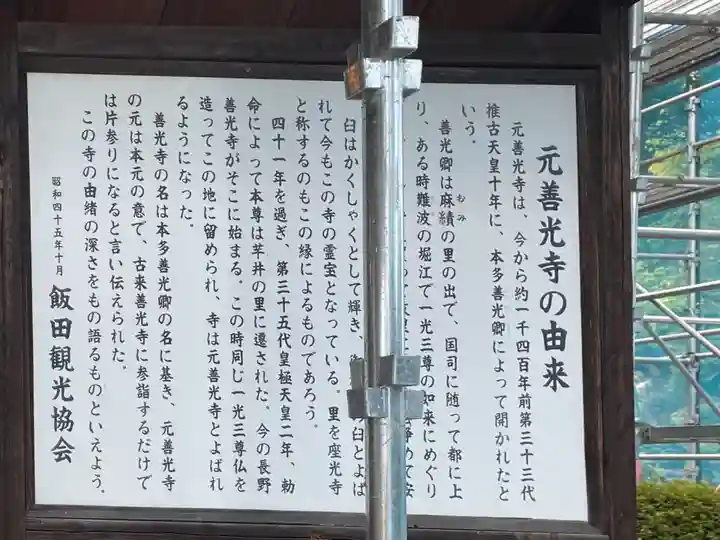 元善光寺の由来
元善光寺は、今から約一千四百年前第三十三代
推古天皇十年に、本多善光卿によって開かれたと
いう。
善光卿は麻績の里の出で、国司に随って都に上
おみ
り、ある時難波の堀江で一光三尊の如来にめぐり
臼はかくしゃくとして輝き、
臼とよば
れて今もこの寺の霊宝となっている。里を座光寺
と称するのもこの縁によるものであろう。
四十一年を過ぎ、第三十五代皇極天皇二年、勅
命によって本尊は芋井の里に遷された。今の長野
善光寺がそこに始まる。この時同じ一光三尊仏を
造ってこの地に留められ、寺は元善光寺とよばれ
るようになった。
善光寺の名は本多善光卿の名に基き、元善光寺
の元は本元の意で、古来善光寺に参詣するだけで
は片参りになると言い伝えられた。
この寺の由緒の深さをもの語るものといえよう。
昭和四十五年十月
飯田観光協会